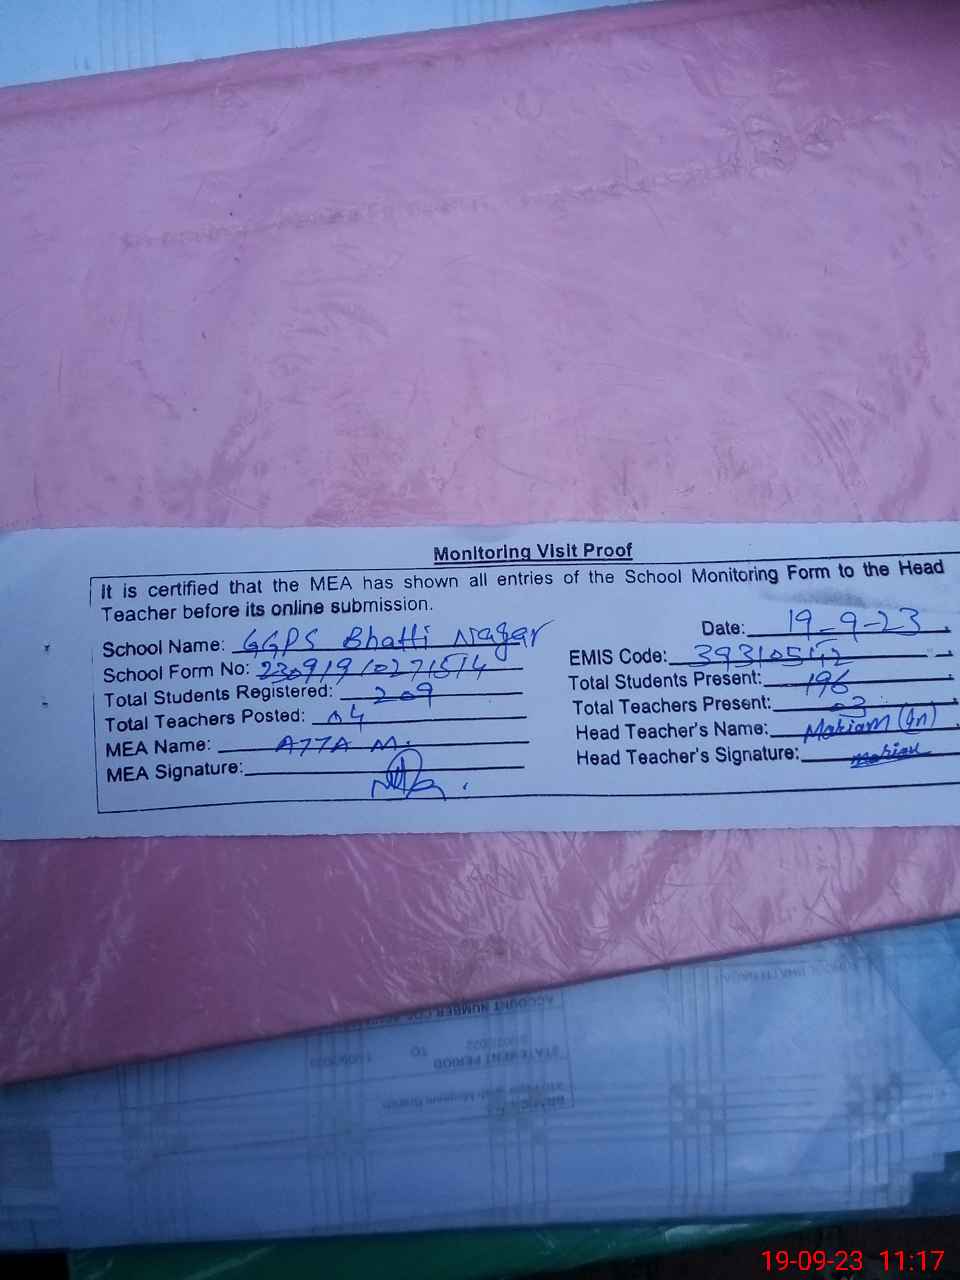 Monitoring Visit Proof
It is certified that the MEA has shown all entries of the School Monitoring Form to the Head
Teacher before its online submission.
School Name: GGPS Bhatti Nagar
Date: 19-9-23
School Form No: 23091910271514
EMIS Code: 39310542
Total Students Registered: 209
Total Students Present: 196
Total Teachers Posted: 04
Total Teachers Present: 03
MEA Name: ATTA M.
Head Teacher's Name: Mariam (In)
MEA Signature:
Head Teacher's Signature: Mariam
ACCOUNT NUMBER
STATEMENT PERIOD TO
19-09-23 11:17